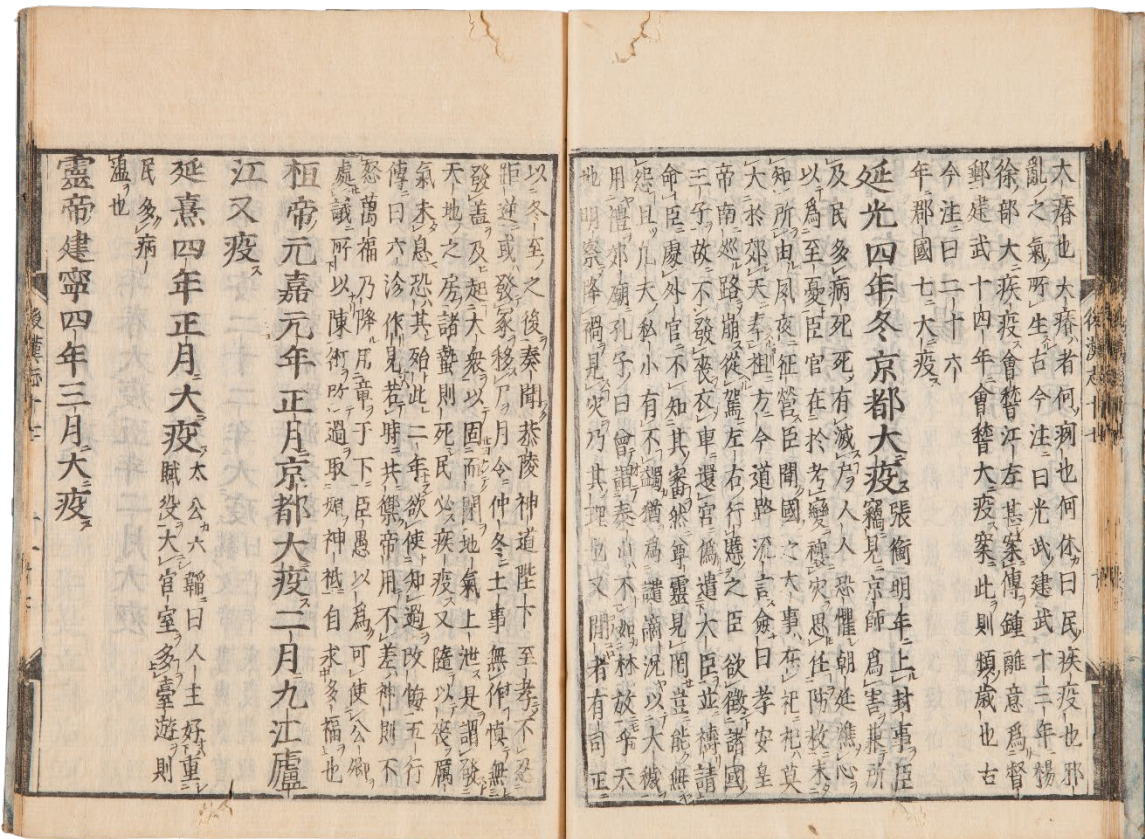 後漢志十七
大瘠也大瘠者何㾐也何休曰民疾疫也邪
亂之氣所生古今注曰光武建武十三年揚
徐部大疾疫會稽江左甚案傳鍾離意爲督
郵建武十四年會稽大疫案此則頻歲也古
今注曰二十六
年郡國七大疫
延光四年冬京都大疫
張衡明年上封事臣
竊見京師爲害兼所
及民多病死死有滅戶人人恐懼朝廷燋心
以爲至憂臣官在於考變禳災思任防救未
知所由夙夜征營臣聞國之大事在祀祀莫
大於郊天奉祖方今道路流言僉曰孝安皇
帝南巡路崩從駕左右行慝之臣欲徵諸國
王子故不發喪衣車還宮僞遣大臣並禱請
命臣處外官不知其審然尊靈見罔豈能無
怨且凡夫私小有不蠲猶爲譴謫況以大穢
用禮郊廟孔子曰曾謂泰山不如林放乎天
地明察降禍見災乃其理也又閒者有司正
以冬至之後奏開恭陵神道陛下至孝不忍
距逆或發冢移尸月令仲冬土事無作愼無
發蓋及起大衆以固而閉地氣上泄是謂發
天地之房諸蟄則死民必疾疫又隨以喪厲
氣未息恐其殆此二年欲使知過改悔五行
傳曰六沴作見若時共禦帝用不差神則不
怒萬福乃降用章于下臣愚以爲可使公卿
處議所以陳術改過取媚神祇自求多福也
桓帝元嘉元年正月京都大疫二月九江廬
江又疫
延熹四年正月大疫
太公六韜曰人主好重
賦役大宮室多臺遊則
民多病
溫也
靈帝建寧四年三月大疫
後漢志十七